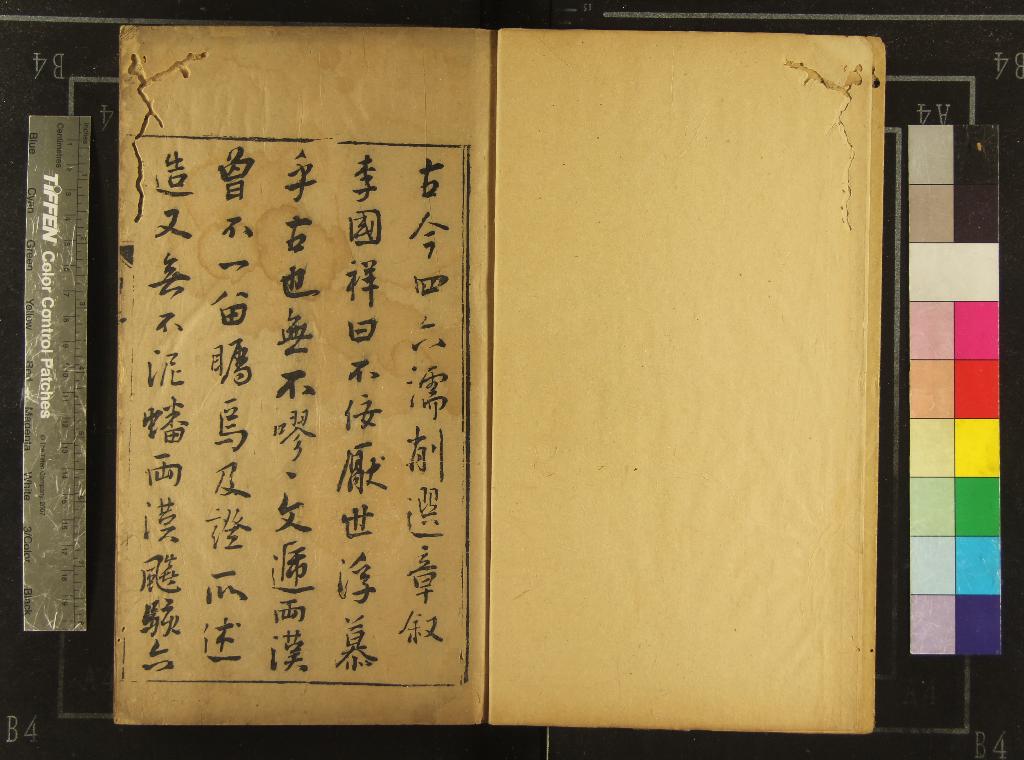 古今四六濡削選章叙
李國祥曰不佞厭世浮慕
乎古也無不嘐〻文遞兩漢
曾不一留矚焉及證所述
造又無不泥蟠兩漢飈駭六
TIFFEN Color Control Patches
Inches
Centimetres
Blue Cyan Green Yellow Red Magenta White 3/Color Black
B4
A4
B4
A4
B4
B4